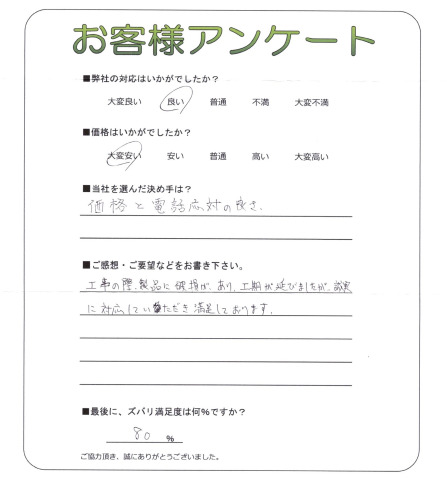 お客様アンケート
■弊社の対応はいかがでしたか？
大変良い 良い 普通 不満 大変不満
■価格はいかがでしたか？
大変安い 安い 普通 高い 大変高い
■当社を選んだ決め手は？
価格と電話応対の良さ.
■ご感想・ご要望などをお書き下さい。
工事の際、製品に破損があり、工期が延びましたが、誠実
に対応していただき満足しております.
■最後に、ズバリ満足度は何％ですか？
80 ％
ご協力頂き、誠にありがとうございました。